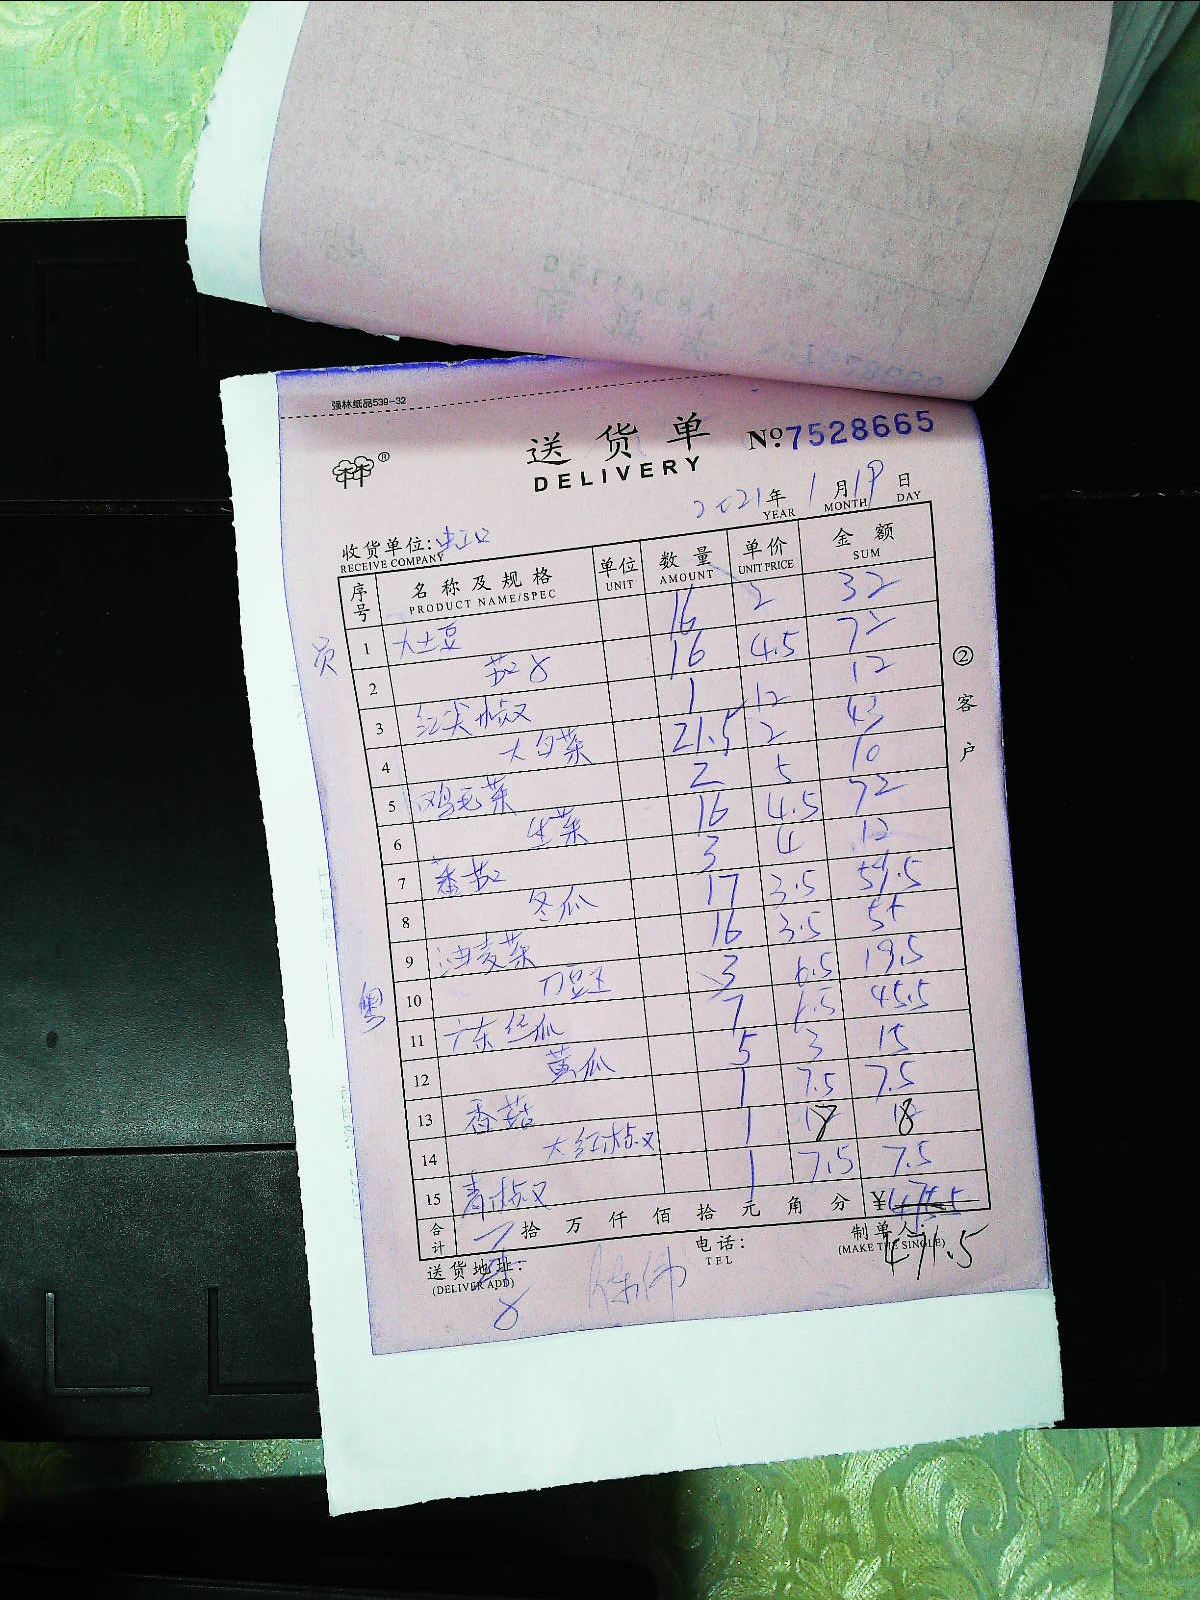 强林纸品539-32
送货单 №7528665
DELIVERY
2021年 1月19日
YEAR MONTH DAY
收货单位:
RECEIVE COMPANY
序号 名称及规格 单位 数量 单价 金额
PRODUCT NAME/SPEC UNIT AMOUNT UNIT PRICE SUM
1 大土豆 16 2 32
2 茄子 16 4.5 72
3 红尖椒 1 12 12
4 大白菜 21.5 2 43
5 鸡毛菜 2 5 10
6 生菜 16 4.5 72
7 番茄 3 4 12
8 冬瓜 17 3.5 59.5
9 油麦菜 16 3.5 55
10 刀豆 3 6.5 19.5
11 广东丝瓜 7 6.5 45.5
12 黄瓜 5 3 15
13 香菇 1 7.5 7.5
14 大红椒 1 18 18
15 青椒 1 7.5 7.5
合计 拾 万 仟 佰 拾 元 角 分 ¥
471.5
送货地址: 电话: 制单人:
(DELIVER ADD) TEL (MAKE THE SINGLE)
②客户